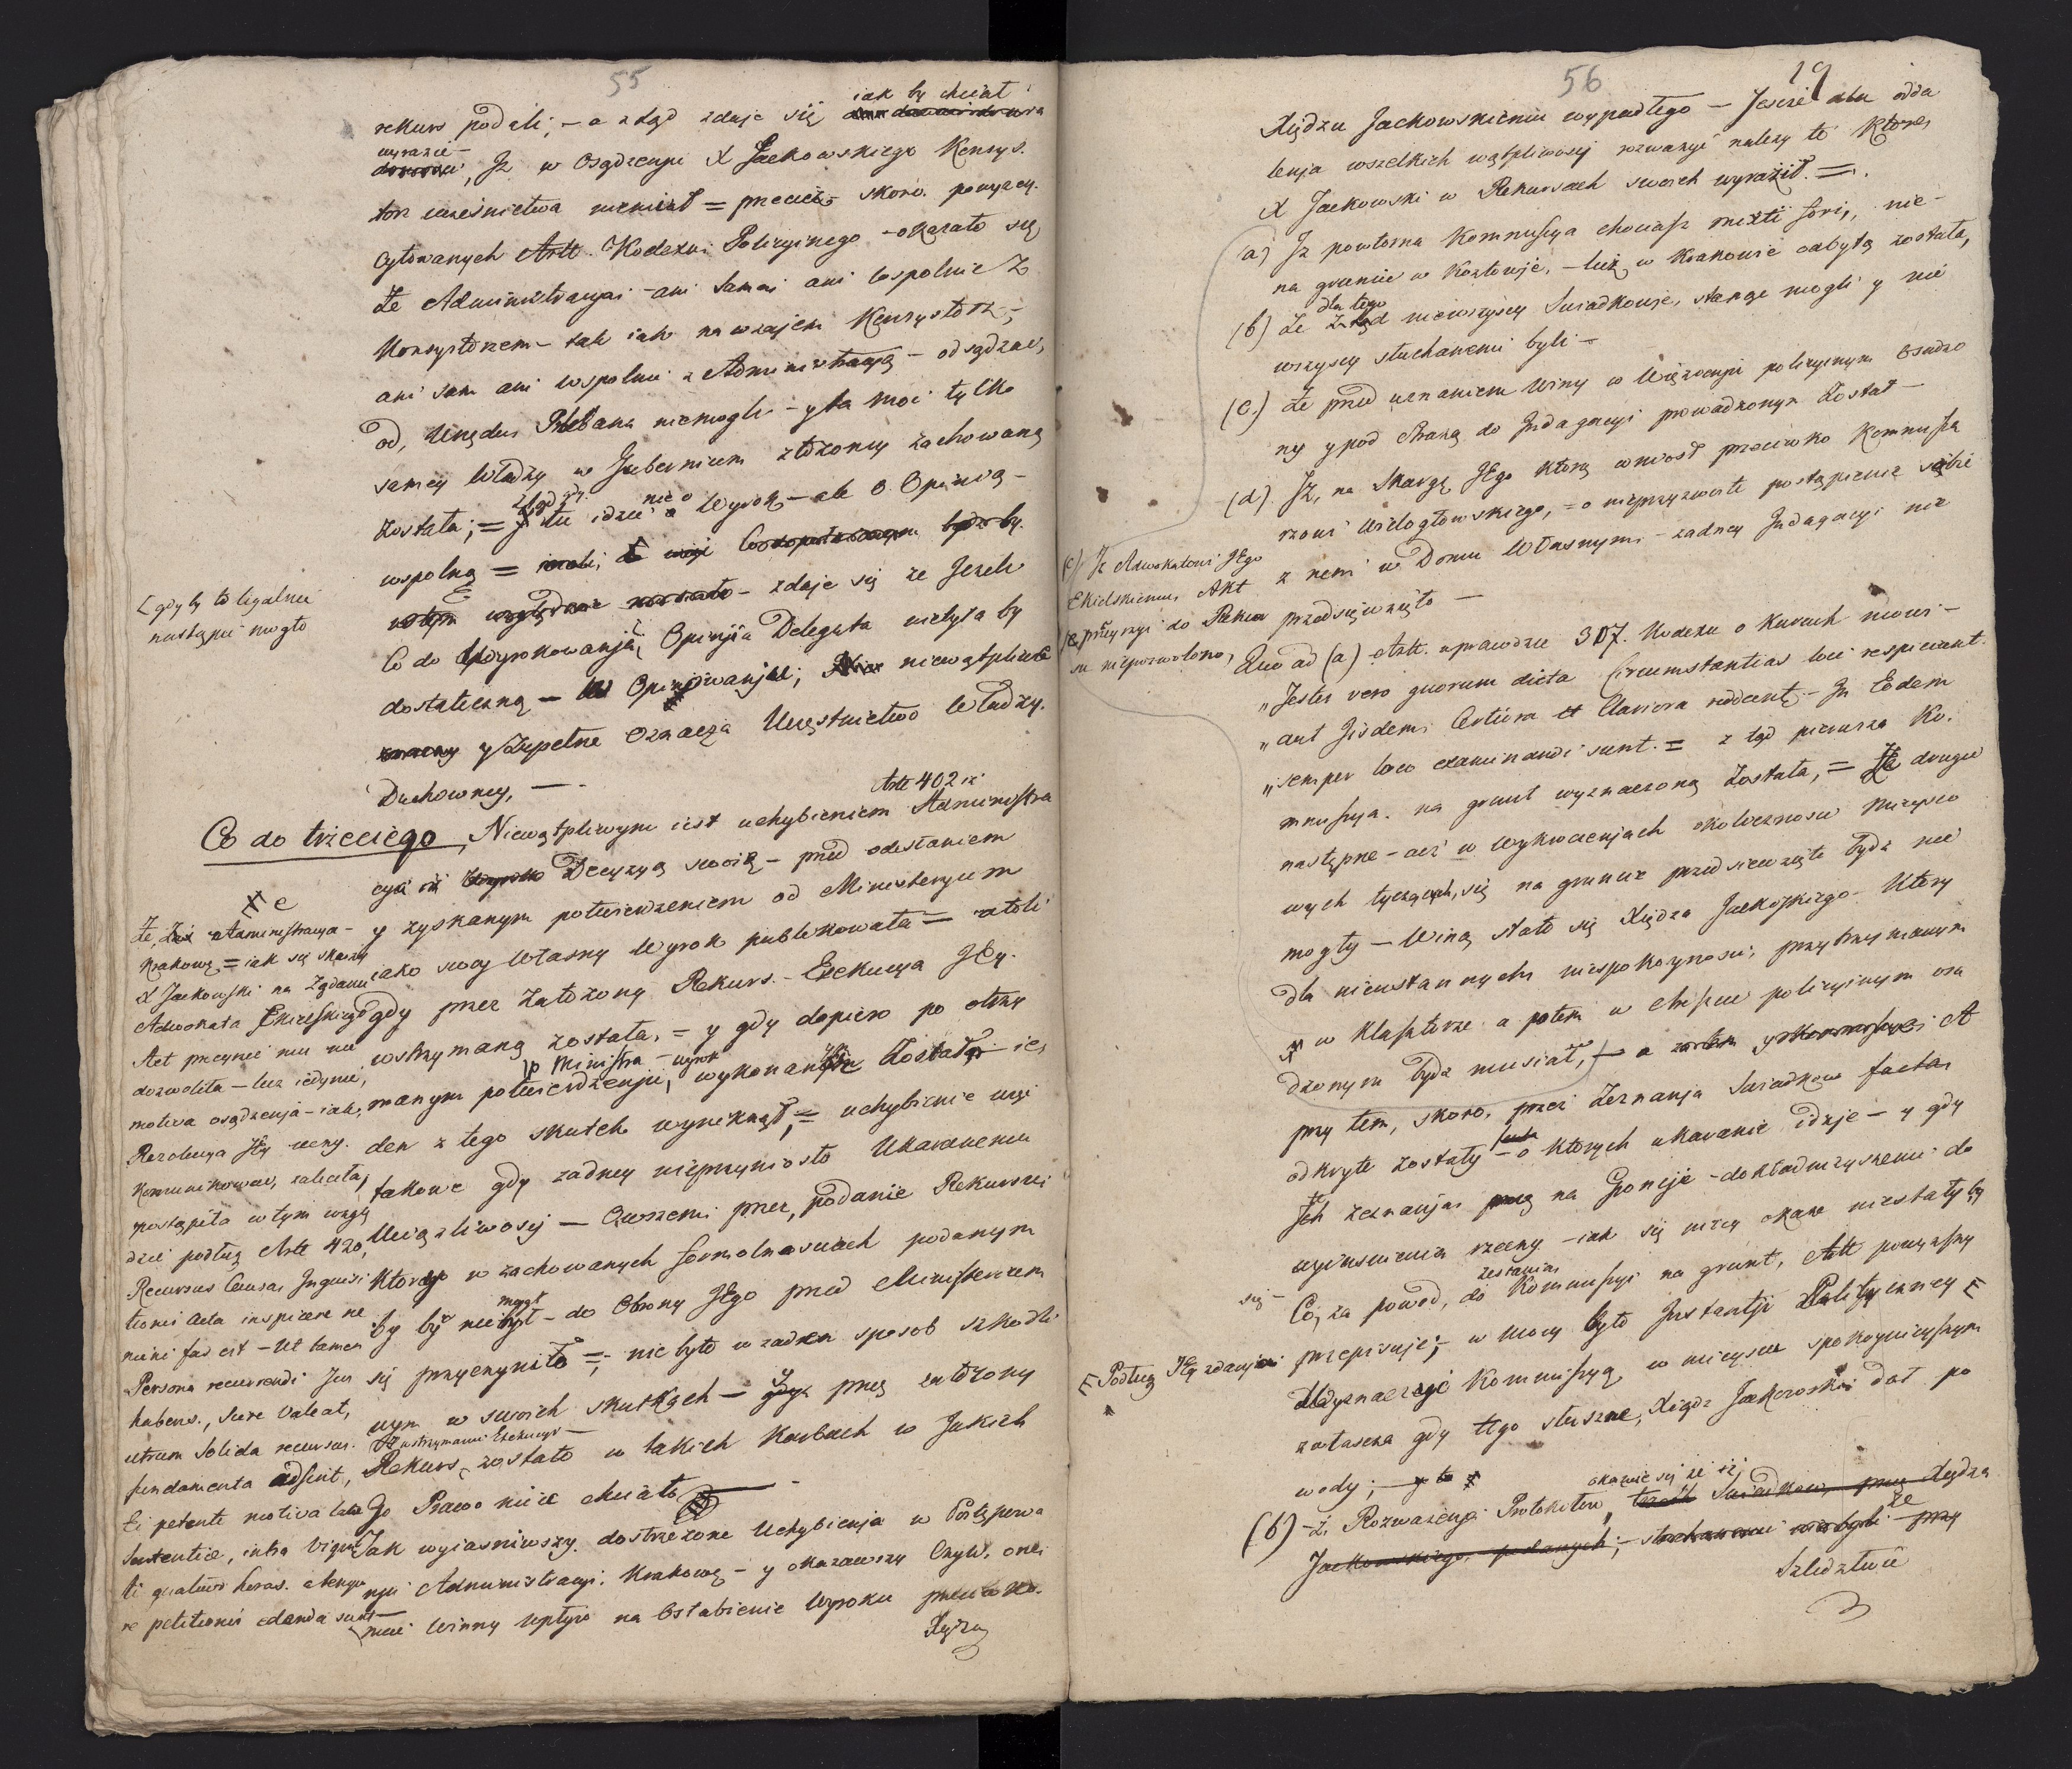 55
rekurs podali; – a ztąd zdaje się iak by chciał
wyrazić –
Iż w Osądzeniu X Jackowskiego Konsys-
torz uczesnictwa niemiał = przecież skoro powyzey
cytowanych Artt. Kodexu Policyinego – okazało się
że Administracyi – ani sami ani wspolnie z
Konsystorzem – tak iak nawzajem Konsystorz –
ani sam ani wspolnie z Administracyą – odsądzac
od Urzędu Plebana niemogli – y ta moc tylko
samey Władzy w Gubernium złożoney zachowaną
została; = tu idzie nie o Wyrok – ale o Opinią –
wspolną =
zdaje się ze Jeżeli
[gdyby to legalnie
nastąpić mogło
Co do Wyrokowania, Opinija Delegata niebyła by
dostateczną – w Opiniowaniu; niewątpliwe
y Zupełne oznacza Uczęstnictwo Władzy
Duchowney, –
Co do trzeciego, Niewątpliwym iest uchybieniem Artt 402 iż Administra
cyia Decyzyą swoią – przed odesłaniem
y zyskanym potwierdzeniem od Ministeryum
iako swoy Własny Wyrok publikowała = atoli
gdy przez Założony Rekurs – Exekucya Jey
wstrzymaną została, = y gdy dopiero po otrzy
manym po Ministra potwierdzeniu, wyrok wykonany został – ie
den z tego skutek wyniknął; = uchybienie więc
takowe gdy zadney nieprzyniosło Ukaranemu
Uciążliwosci – Owszem przez podanie Rekursu
Ktorego w zachowanych formolnosciach podanym
by był niemogł – do Obrony Jego przed Ministerium
się przyczyniło = nie było w zaden sposob szkodli
wym w swoich skutkach – gdyż przez założony
dla wstrzymania Exekucyi –
Rekurs, zostało w takich Karbach w Jakich
Go Prawo mieć chciało –
Jak wyiasniwszy dostrzeżone Uchybienia w Postępowa
niu Administracyi Krakowsk – y okazawszy Czyli one
mieć winny wpływ na Osłabienie Wyroku przeciwko
Xiędzu
Że
Że Administracya –
Krakows = iak się skarży
X Jackowski na Żądanie
Adwokata Ekielskiego
Act przeyrzec mu nie
dozwoliła – lecz iedynie,
motiva osądzenia – iak
Rezolucya Jey uczy.
Komunikować, zaleciła,
postąpiła w tym wzglę
dzie podług Artt 420,
Recursus Causa, Inquisi
tionis acta inspicere ne
mini fas est – Ut tamen
Persona recurrendi Jus
habens, scire valeat,
utrum Solida recursus
fundamenta adsint,
Ei petente motiva latae
Sententiae, intra viginti
ti quatuor horas a tempo
re petitionis edenda sunt –
56
19
Xiędzu Jackowskiemu wypadłego – Jeszcze dla odda
lenia wszelkich wątpliwosci rozwazyć nalezy to Które
X Jackowski w Rekursach swoich wyraził. =
(a) Iż powtorna Kommissya chociasz mixti fori, nie –
na gruncie w Kozłowie, – lecz w Krakowie odbytą została,
(b) Że dla tego niewszyscy Swiadkowie, stanąc mogli y nie
wszyscy słuchanemi byli –
(c.) Że przed uznaniem Winy w Więzieniu policyinym Osadzo
ny y pod Strażą do Indagacyi prowadzonym Został –
(d) Iż, na Skargę Jego Którą wniosł przeciwko Kommissa
rzowi Wielogłowskiego, = o nieprzyzwoite postąpienie sobie
z nim w Domu Własnym – zadney Indagacyi nie
przedsięwzięto –
(e) Iż Adwokatowi Jego
Ekielskiemu, Akt
przeyrzyć do Rekur
su niepozwolono,
Quo ad (a) Artt. wprawdzie 307. Kodexu o Karach mowi –
„Testes vero quorum dicta Circumstantias loci respiciunt
„aut Iisdem Certiora et Clariora reddunt – In Eodem
„semper loco examinandi sunt. = z tąd pierwsza Ko-
missya na grunt wyznaczoną Została, = Że drugie
następne – acz w Wykroczeniach okolicznosci mieysco
wych tyczących się na gruncie przedsiewzięte bydz nie
mogły – Winą stało się Xiędza Jackowskiego – Ktory
dla nieustannych niespokoynosci, przytrzymanym
w Klasztorze a potem w Areszcie policyinym osa
dzonym bydz musiał, – a
przy tem, skoro, przez Zeznania Swiadkow facta
odkryte zostały – o ktorych ukaranie idzie – y gdy
Ich zeznania na Groncie – dokładnieyszemi do
wyiasnienia rzeczy – iak się niżey okaze niestały by
się – Co, za powod, do zesłania Kommissyi na grunt, Artt powyzszy
przepisuje; – w mocy było Instantji Politiczney
[Podług Jey zdania
Wyznaczyć Kommissyą w mieyscu spokoynieyszym
zwłaszcza gdy tego słuszne, Xiądz Jackowski dał po
wody; –
(b) – Z Rozwazenia Protokołow, okazuie się że iż Swiadkow, przez Xiędza
Jackowskiego podanych; – słuchanemi niebyli – że przy
Szledztwie